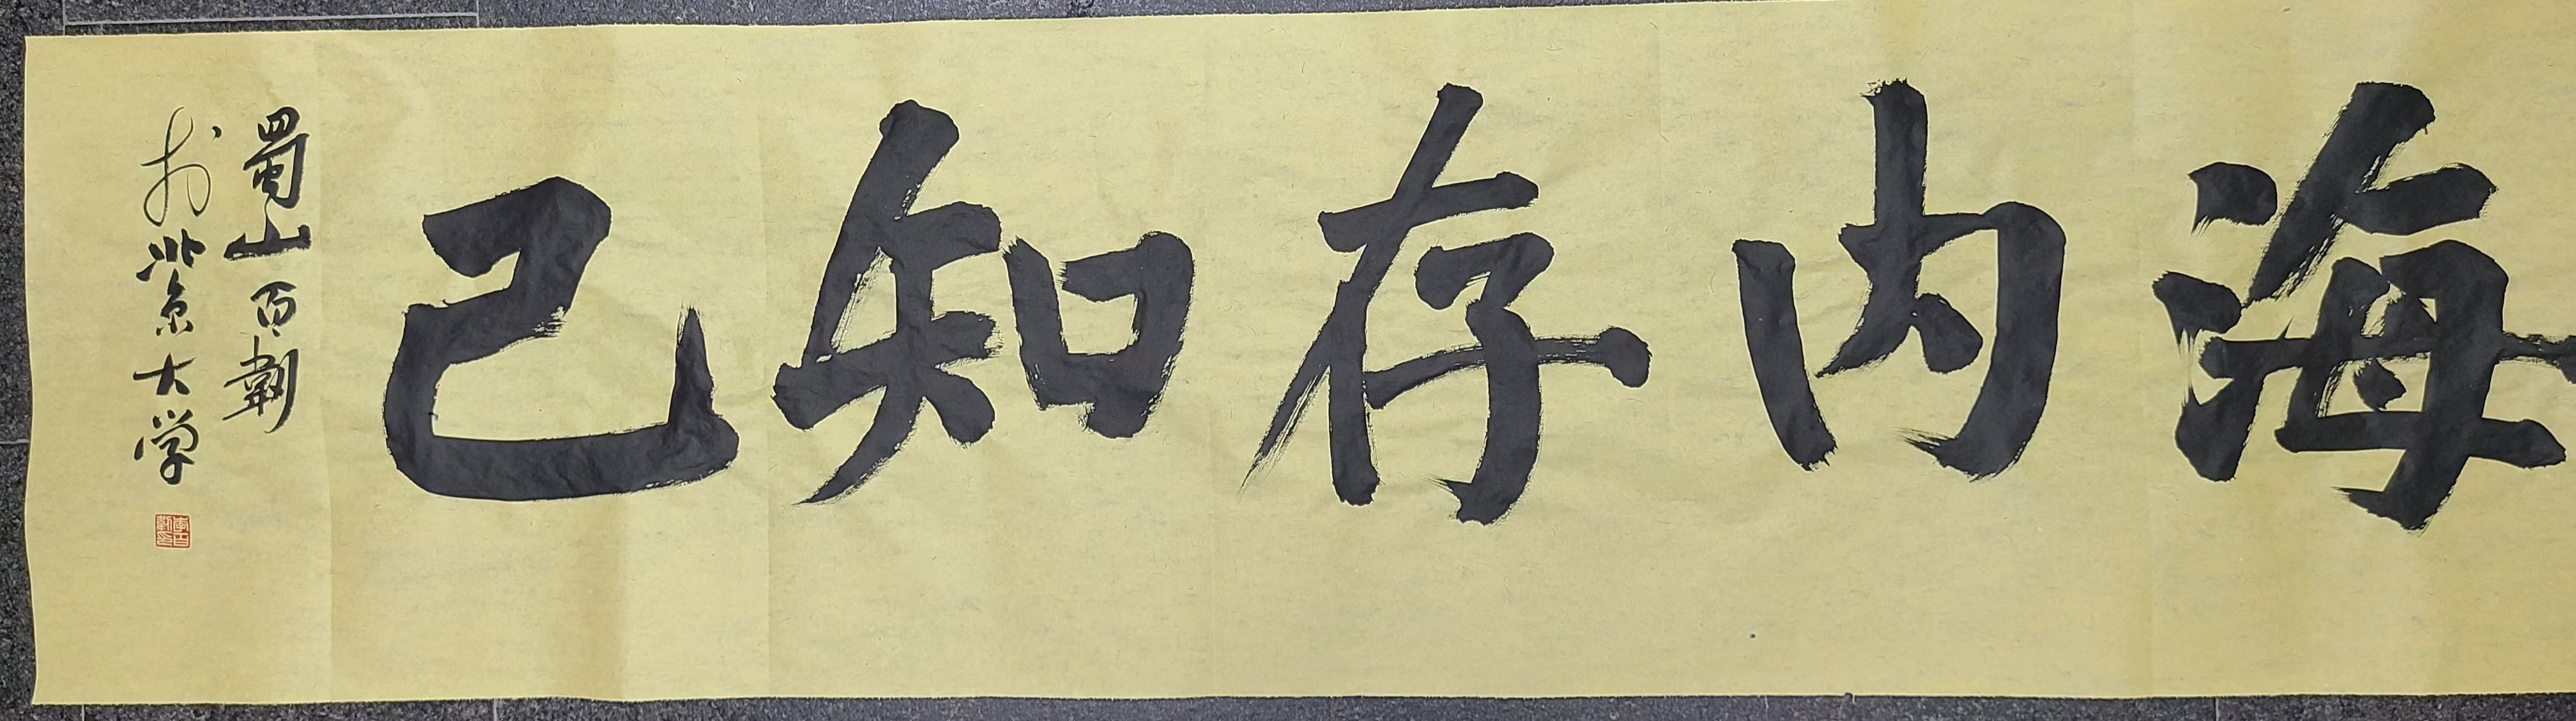 海内存知己
蜀山百韌
於北京大学